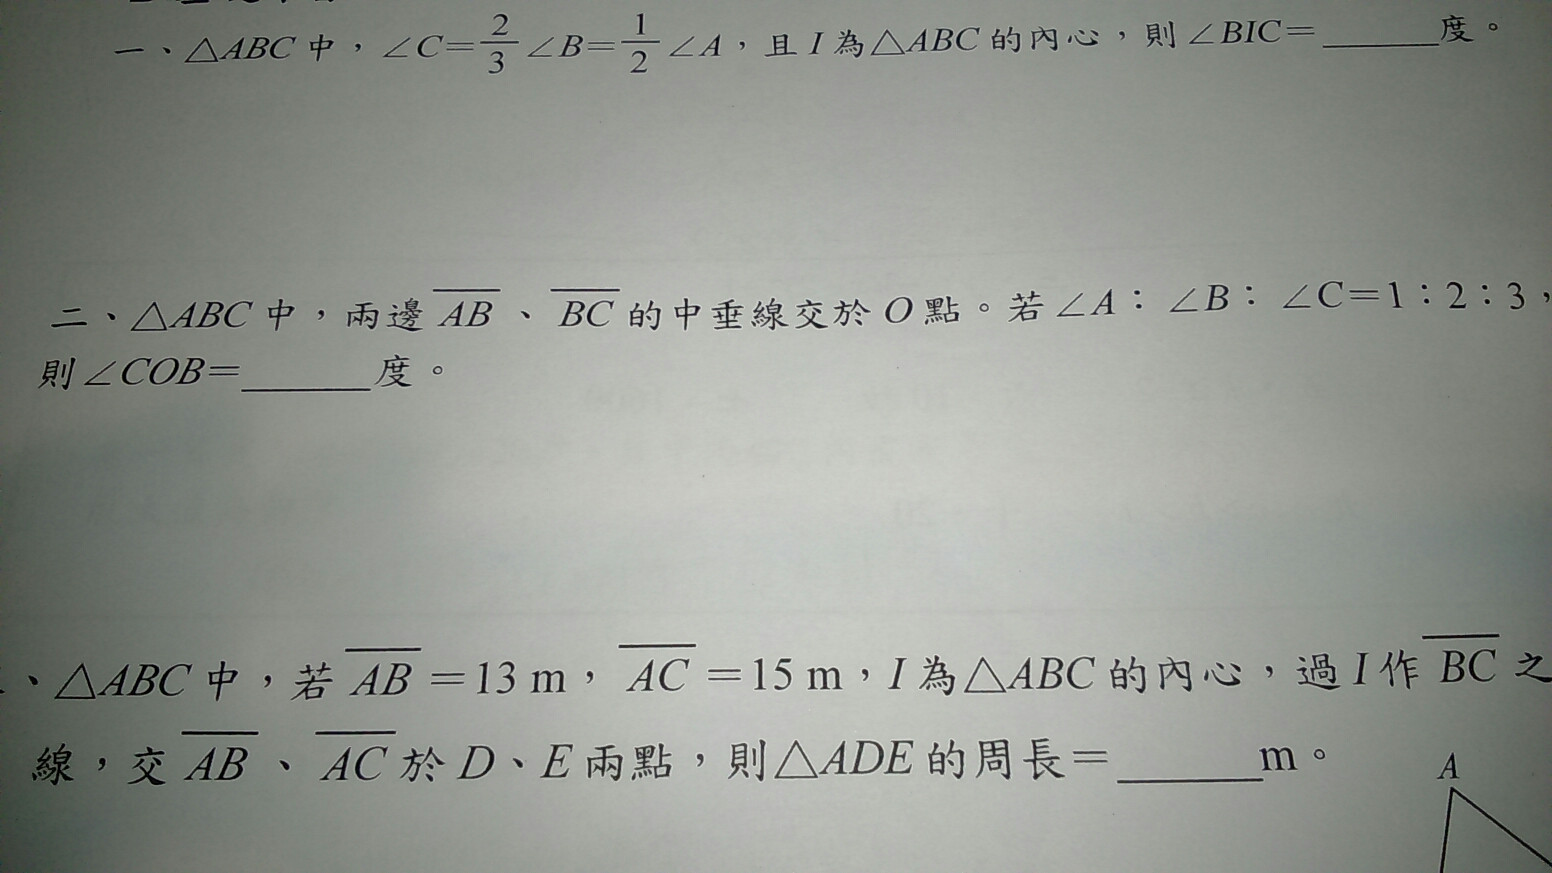 一、△ABC中，∠C=2/3∠B=1/2∠A，且I為△ABC的內心，則∠BIC=______度。
二、△ABC中，兩邊A̅B̅、B̅C̅的中垂線交於O點。若∠A：∠B：∠C=1：2：3，
則∠COB=______度。
、△ABC中，若A̅B̅=13 m，A̅C̅=15 m，I為△ABC的內心，過I作B̅C̅之
線，交A̅B̅、A̅C̅於D、E兩點，則△ADE的周長=______m。
A